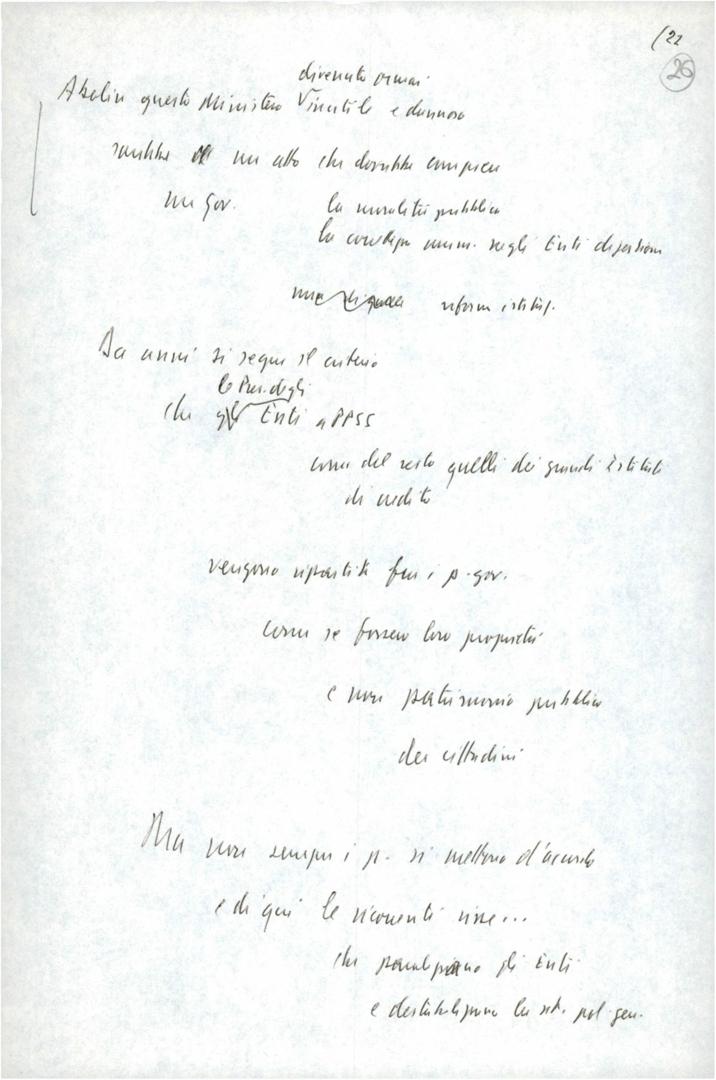 (22
26
divenuto ormai
Abolire questo Ministero inutile e dannoso
sarebbe un atto che dovrebbe compiere
un gov. la moralità pubblica
la negli Enti di gestione
una riforma istituz.
Da anni si segue il criterio
le Pres. degli
che gli Enti a PPSS
come del resto quelli dei grandi Istituti
di credito
vengono ripartite fra i p. gov.
come se fossero loro proprietà
e non patrimonio pubblico
dei cittadini
Ma non sempre i p. si mettono d'accordo
e di qui le ricorrenti risse...
che paralizzano gli Enti
e destabilizzano la pol. gen.